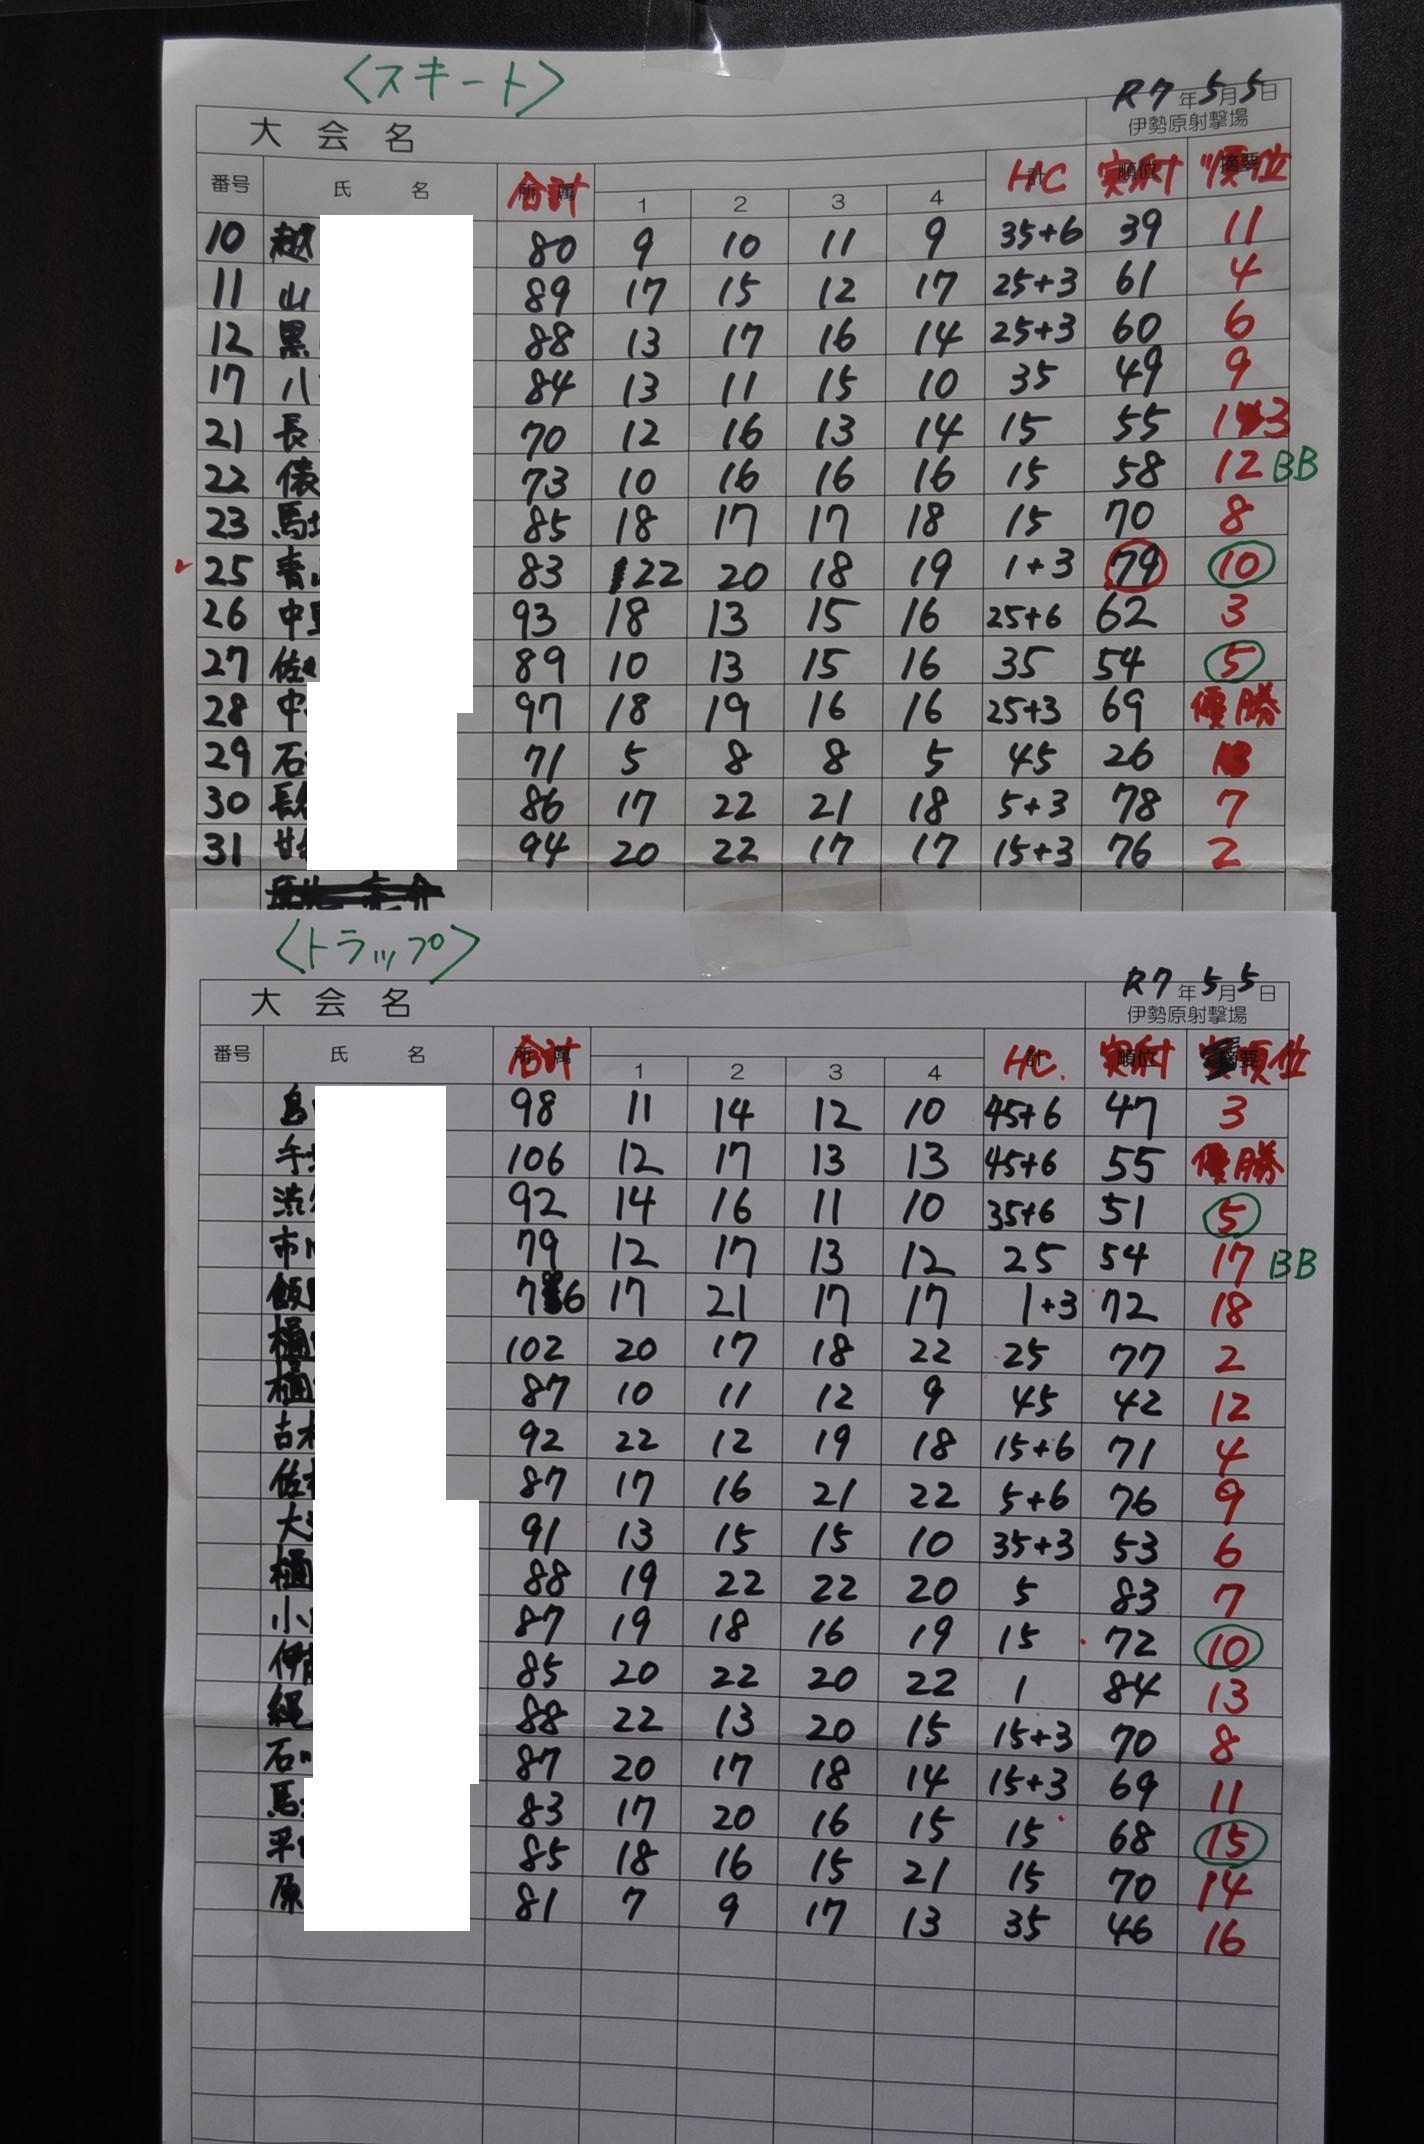 〈スキート〉
R7年5月5日
大会名 伊勢原射撃場
番号 氏名 合計 1 2 3 4 HC 実射 順位
10 越 80 9 10 11 9 35+6 39 11
11 山 89 17 15 12 17 25+3 61 4
12 黒 88 13 17 16 14 25+3 60 6
17 八 84 13 11 15 10 35 49 9
21 長 70 12 16 13 14 15 55 13
22 俵 73 10 16 16 16 15 58 12 BB
23 馬 85 18 17 17 18 15 70 8
25 青 83 22 20 18 19 1+3 79 10
26 中 93 18 13 15 16 25+6 62 3
27 佐 89 10 13 15 16 35 54 5
28 中 97 18 19 16 16 25+3 69 優勝
29 石 71 5 8 8 5 45 26
30 長 86 17 22 21 18 5+3 78 7
31 甘 94 20 22 17 17 15+3 76 2
〈トラップ〉
R7年5月5日
大会名 伊勢原射撃場
番号 氏名 合計 1 2 3 4 HC. 実射 順位
島 98 11 14 12 10 45+6 47 3
手 106 12 17 13 13 45+6 55 優勝
渋 92 14 16 11 10 35+6 51 5
市 79 12 17 13 12 25 54 17 BB
飯 76 17 21 17 17 1+3 72 18
樋 102 20 17 18 22 25 77 2
樋 87 10 11 12 9 45 42 12
古 92 22 12 19 18 15+6 71 4
佐 87 17 16 21 22 5+6 76 9
大 91 13 15 15 10 35+3 53 6
樋 88 19 22 22 20 5 83 7
小 87 19 18 16 19 15 72 10
伊 85 20 22 20 22 1 84 13
縄 88 22 13 20 15 15+3 70 8
石 87 20 17 18 14 15+3 69 11
馬 83 17 20 16 15 15 68 15
平 85 18 16 15 21 15 70 14
原 81 7 9 17 13 35 46 16